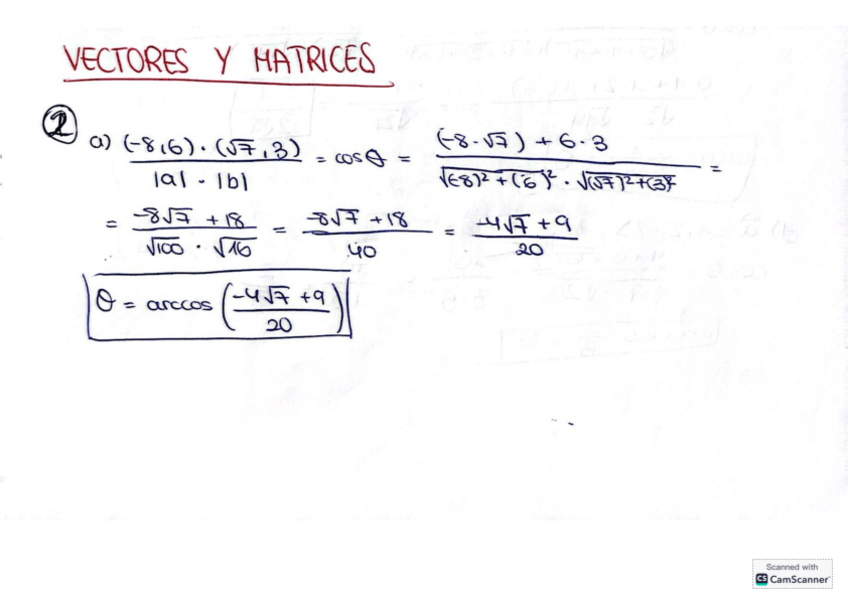 VECTORES Y MATRICES
2 a) (-8,6) · (√7, 3) / |a| · |b| = cos θ = (-8·√7) + 6·3 / √(-8)² + (6)² · √(√7)² + (3)² =
= -8√7 + 18 / √100 · √16 = -8√7 + 18 / 40 = -4√7 + 9 / 20
θ = arccos (-4√7 + 9 / 20)
Scanned with
CS CamScanner